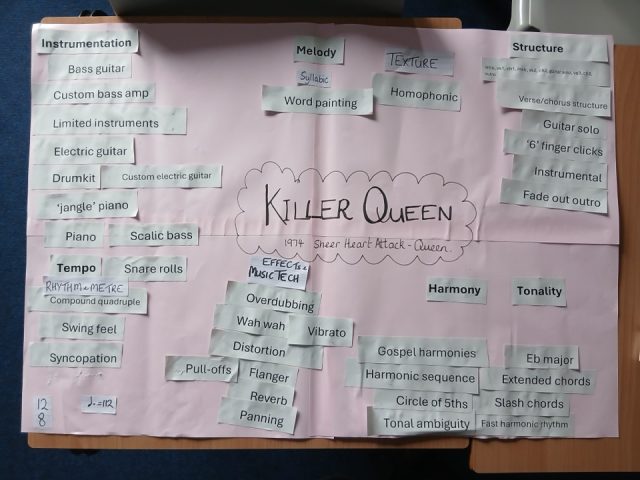 Instrumentation
Bass guitar
Custom bass amp
Limited instruments
Electric guitar
Drumkit
Custom electric guitar
'jangle' piano
Piano
Scalic bass
Tempo
Snare rolls
RHYTHM & METRE
Compound quadruple
Swing feel
Syncopation
12
8
♩. =112
Melody
Syllabic
Word painting
TEXTURE
Homophonic
Structure
Verse/chorus structure
Guitar solo
'6' finger clicks
Instrumental
Fade out outro
KILLER QUEEN
1974 Sheer Heart Attack - Queen.
EFFECTS &
MUSIC TECH
Overdubbing
Wah wah
Vibrato
Distortion
Pull-offs
Flanger
Reverb
Panning
Harmony
Gospel harmonies
Harmonic sequence
Circle of 5ths
Tonal ambiguity
Tonality
Eb major
Extended chords
Slash chords
Fast harmonic rhythm